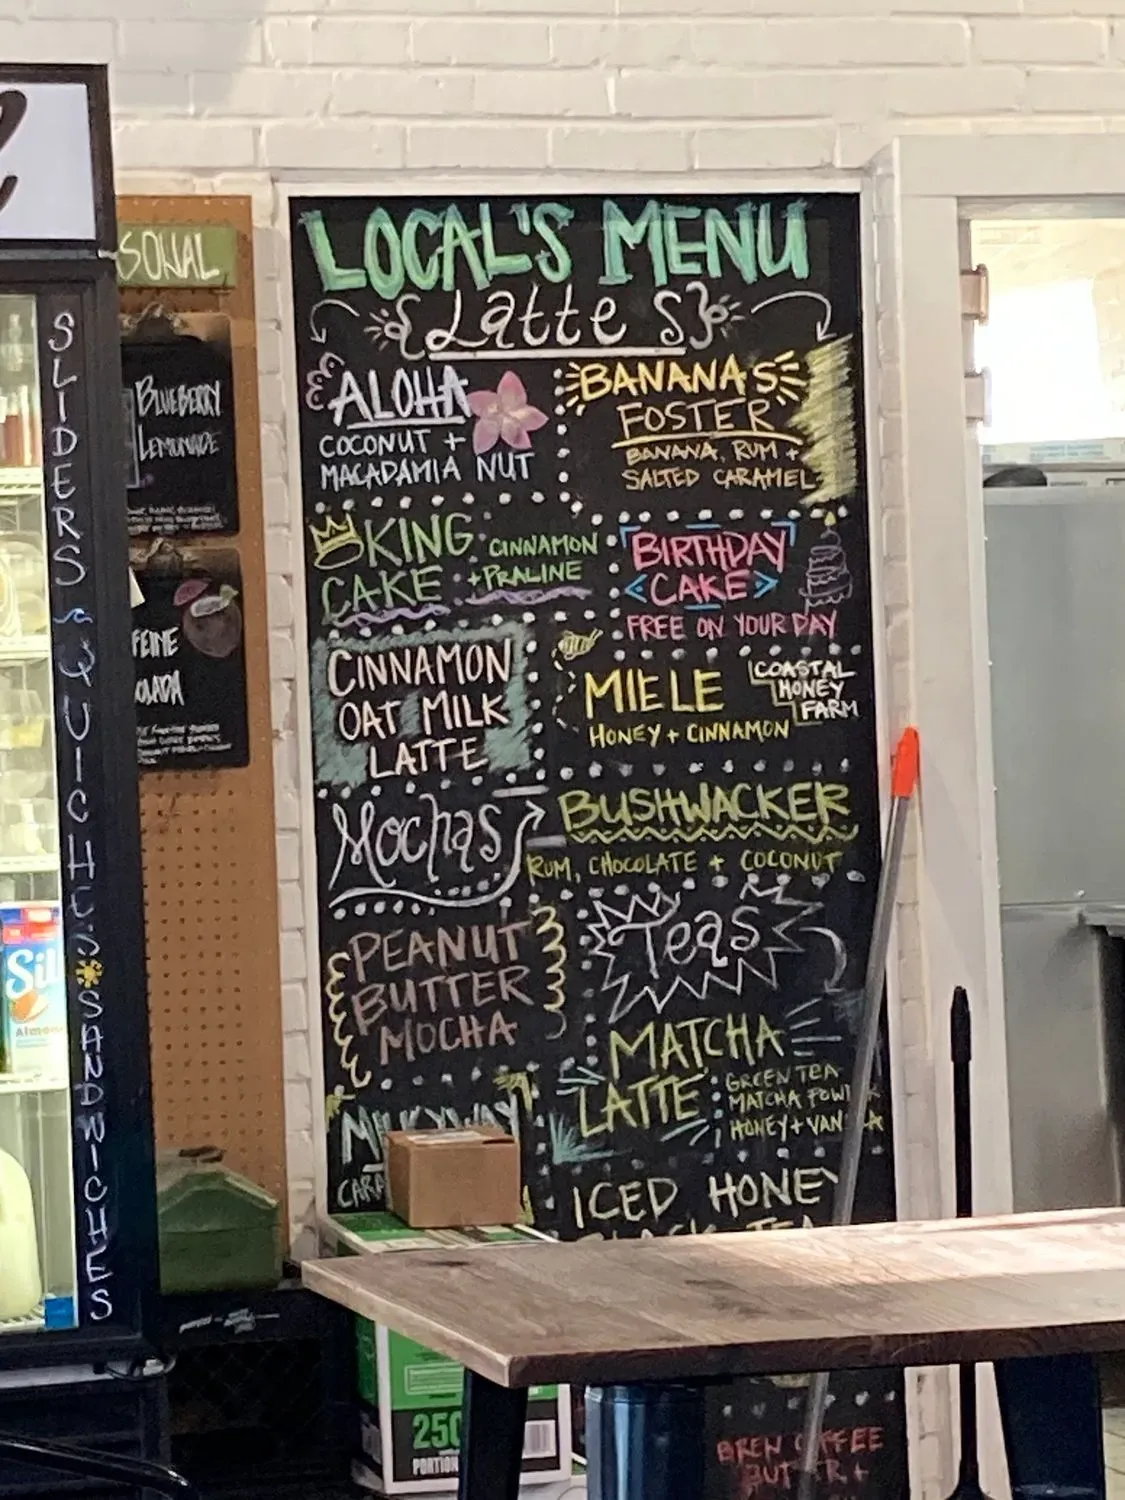 LOCAL'S MENU
{Lattes}
ALOHA
COCONUT +
MACADAMIA NUT
BANANAS
FOSTER
BANANA, RUM +
SALTED CARAMEL
KING
CAKE
CINNAMON
+PRALINE
BIRTHDAY
CAKE
FREE ON YOUR DAY
CINNAMON
OAT MILK
LATTE
MIELE
HONEY + CINNAMON
COASTAL
HONEY
FARM
Mochas
BUSHWACKER
RUM, CHOCOLATE + COCONUT
PEANUT
BUTTER
MOCHA
Teas
MATCHA
LATTE
GREEN TEA
MATCHA
HONEY +
MILKYWAY
ICED HONEY
SLIDERS & QUICHES SANDWICHES
SONAL
BLUEBERRY
LEMONADE
FEINE
OLADA
Sil
Almo
250
PORTION